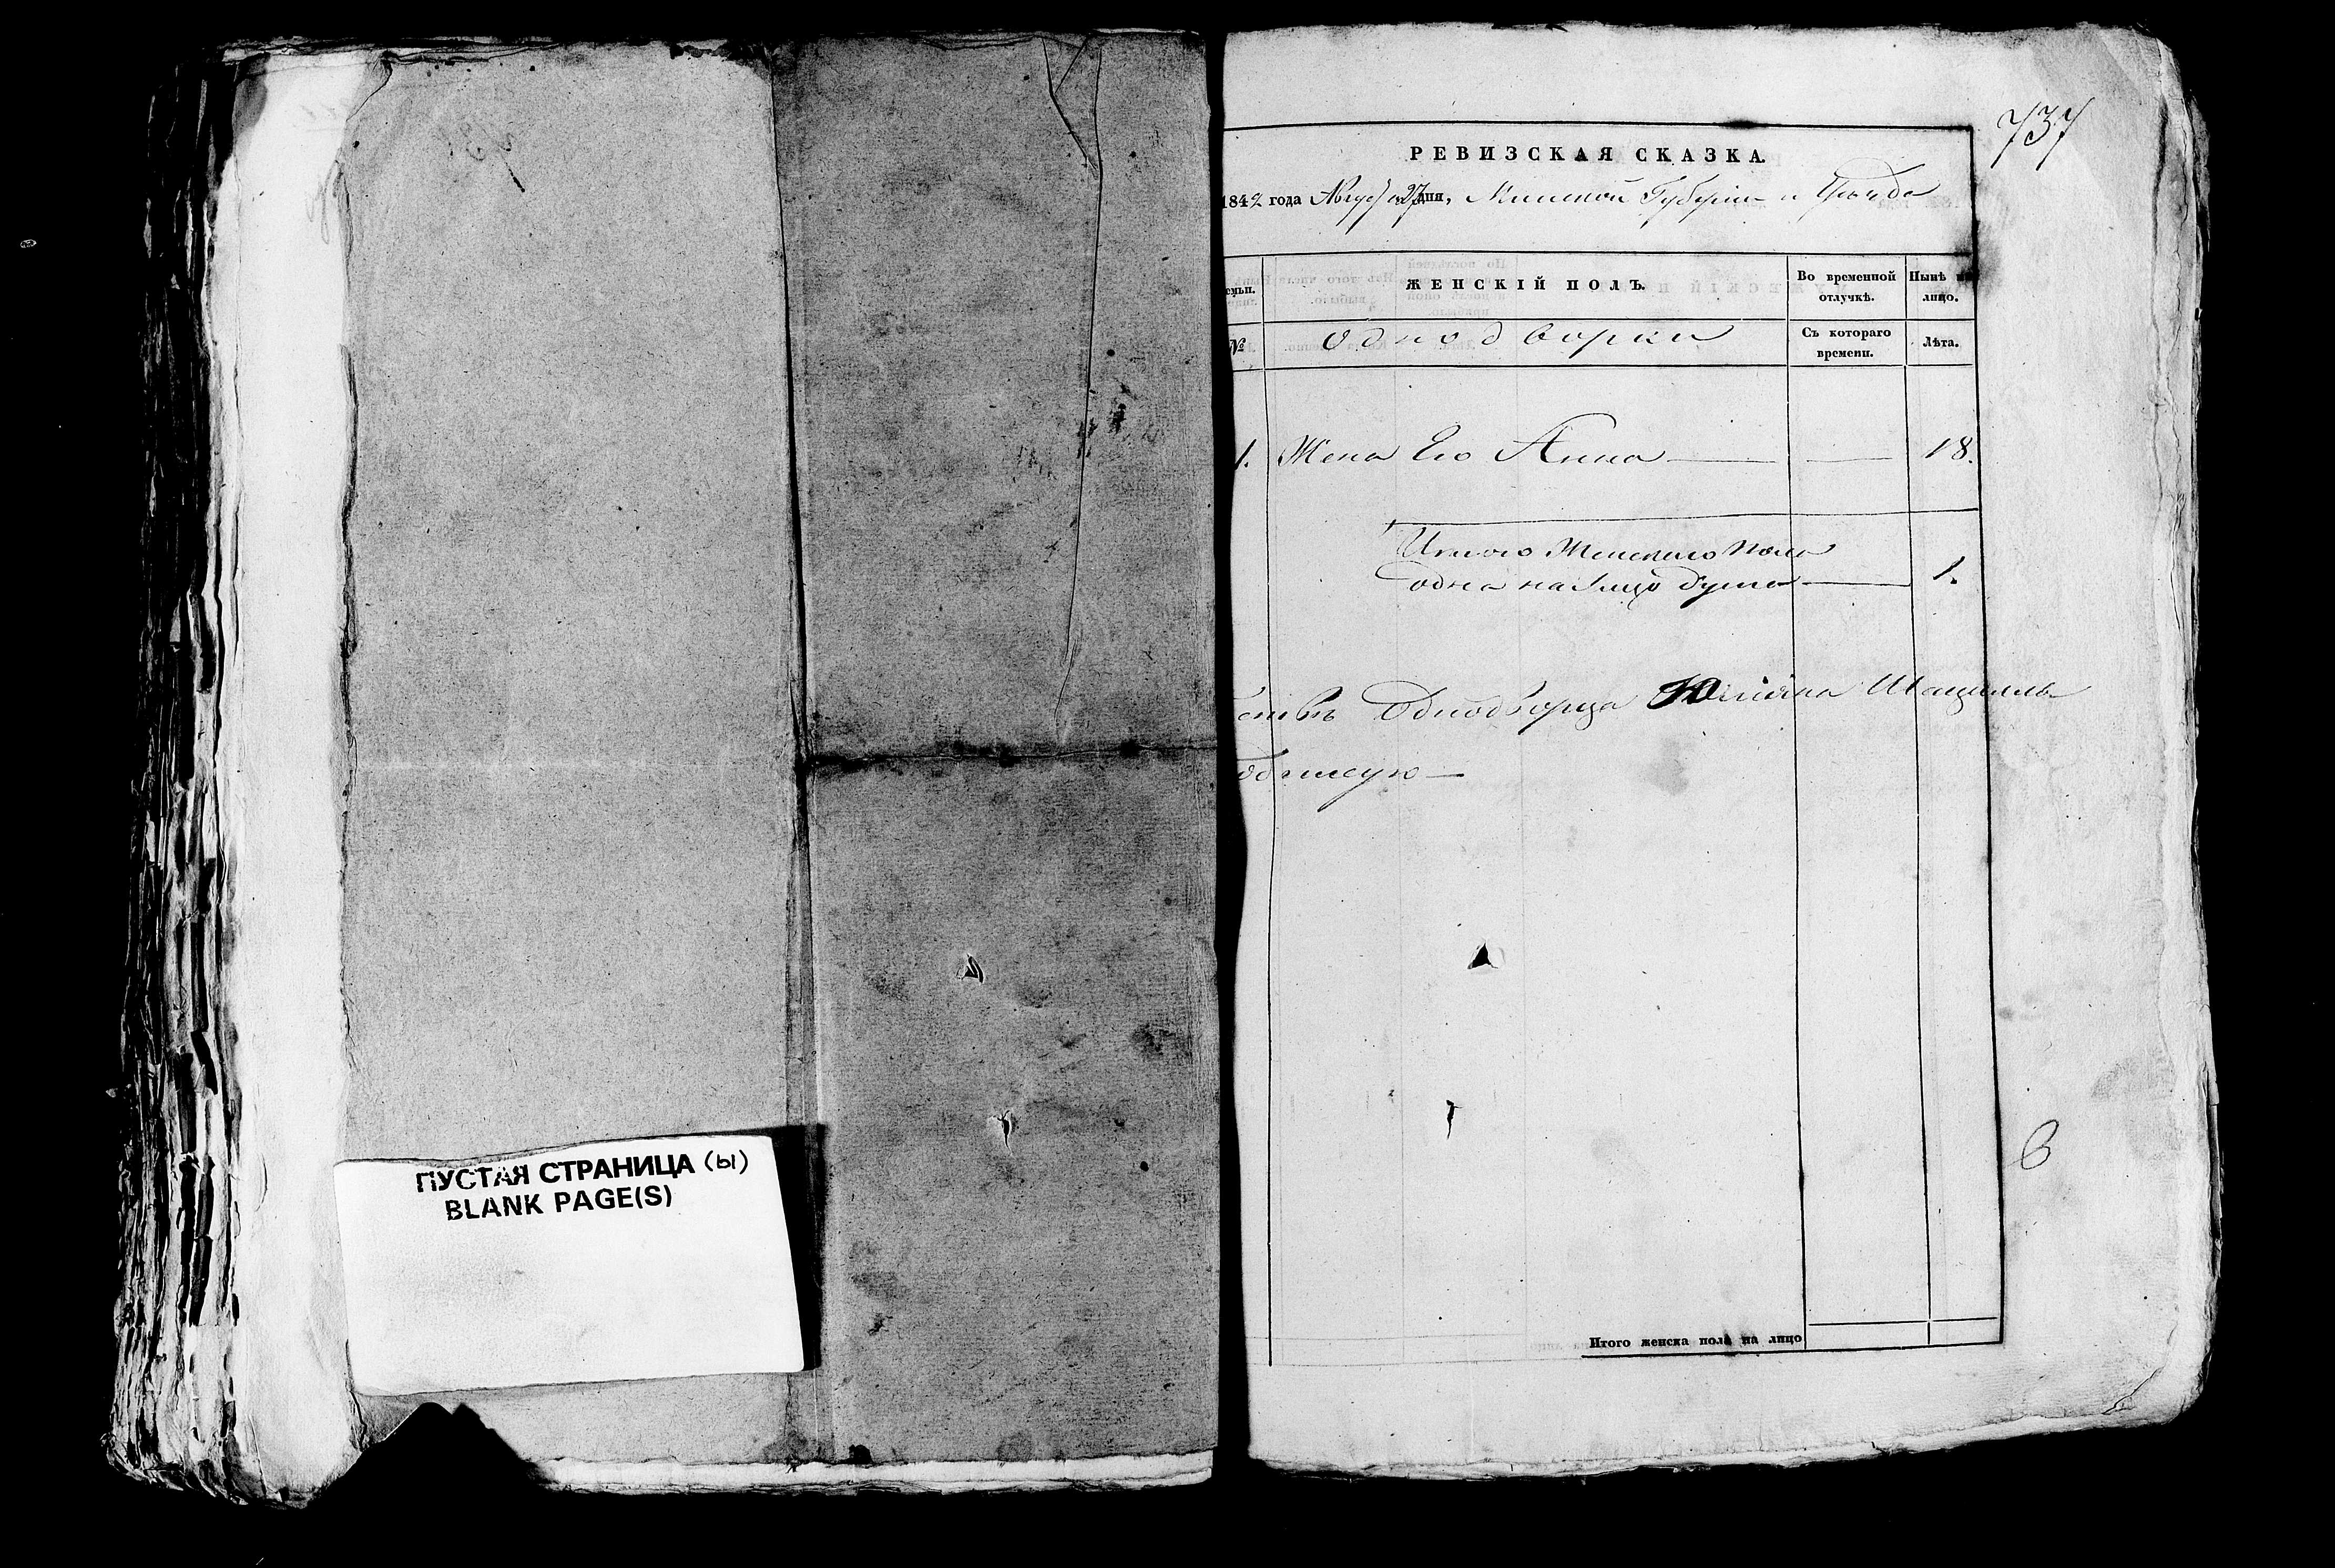 ПУСТАЯ СТРАНИЦА (ы)
BLANK PAGE(S)
737
РЕВИЗСКАЯ СКАЗКА.
1842 года 27 дня, Минской Губерніи и Уѣзда
ЖЕНСКІЙ ПОЛЪ.
Во временной отлучкѣ.
Нынѣ на лицо.
№
однодворки
Съ котораго времени.
Лѣта.
1. Жена Его Анна — — 18.
Итого Женского пола
одна на лицо душа — 1.
Однодворца Юліяна
одписую —
Итого женска пола на лицо